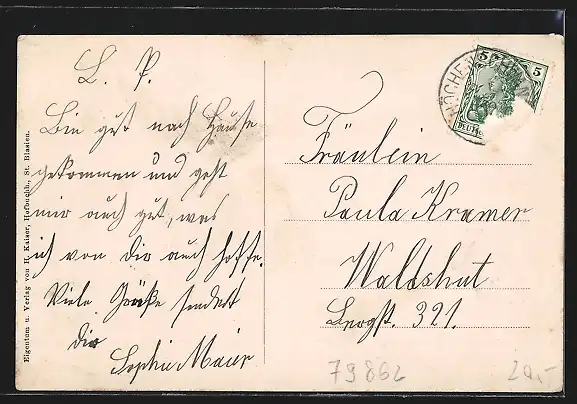 L. P.
Bin gut nach Hause
gekommen und geht
mir auch gut, was
ich von Dir auch hoffe.
Viele Grüße sendet
Dir
Sophie Maier
Fräulein
Paula Kramer
Waldshut
Bergst. 321.
5 5
HÖCHE
Eigentum u. Verlag von H. Kaiser, Hofbuchh., St. Blasien.
79862
20,-